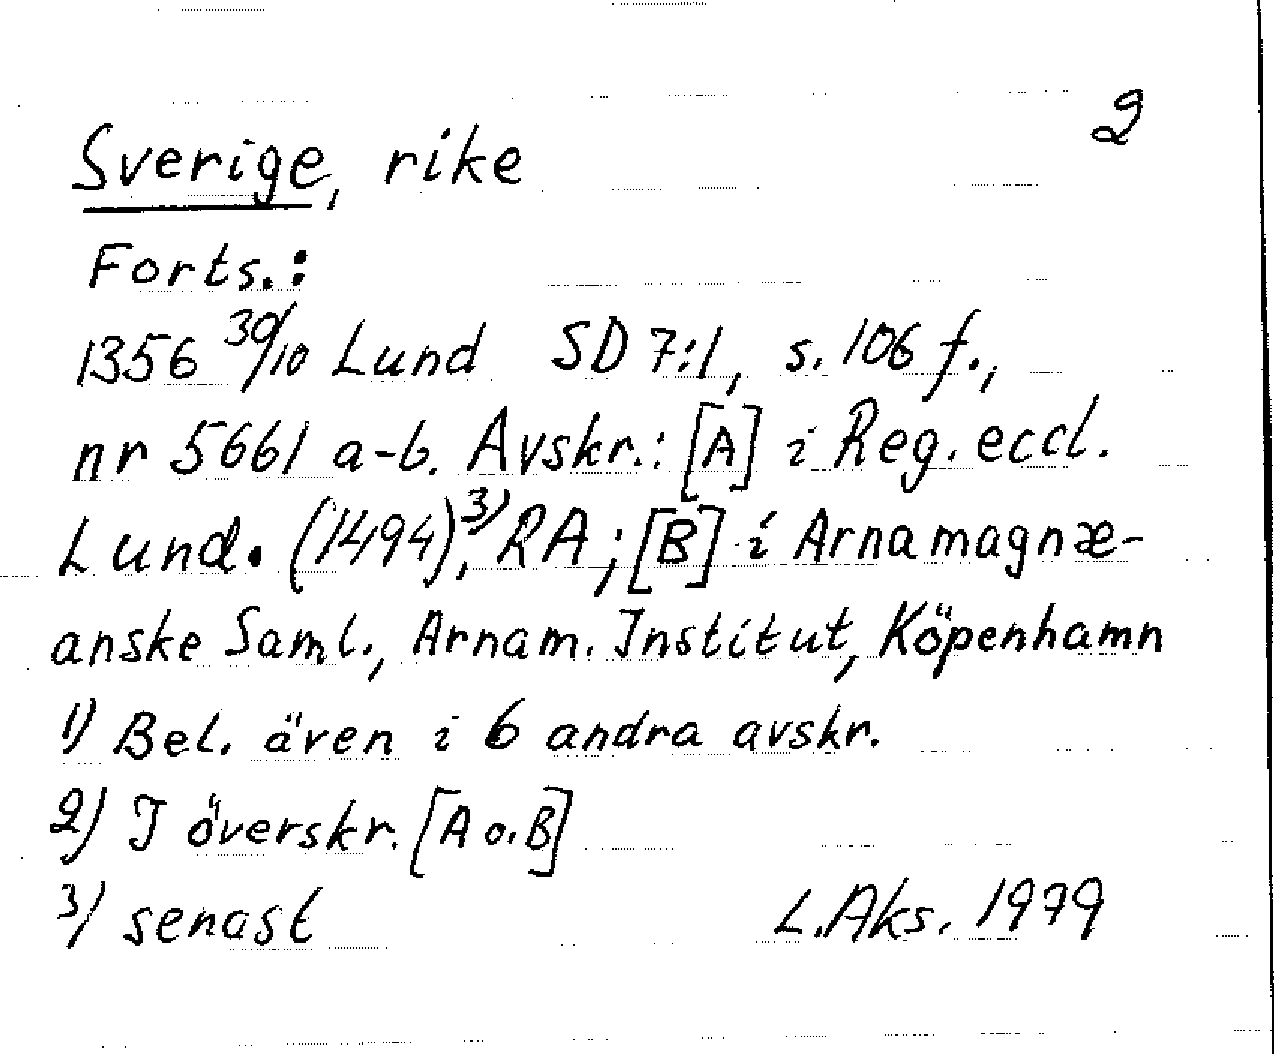 2
Sverige, rike
Forts.:
1356 30/10 Lund SD 7:1, s. 106 f.,
nr 5661 a-b. Avskr.: [A] i Reg. eccl.
Lund. (1494)³⁾, RA; [B] i Arnamagnæ-
anske Saml., Arnam. Institut, Köpenhamn
1) Bel. även i 6 andra avskr.
2) I överskr. [A o. B]
3) senast L. Aks. 1979